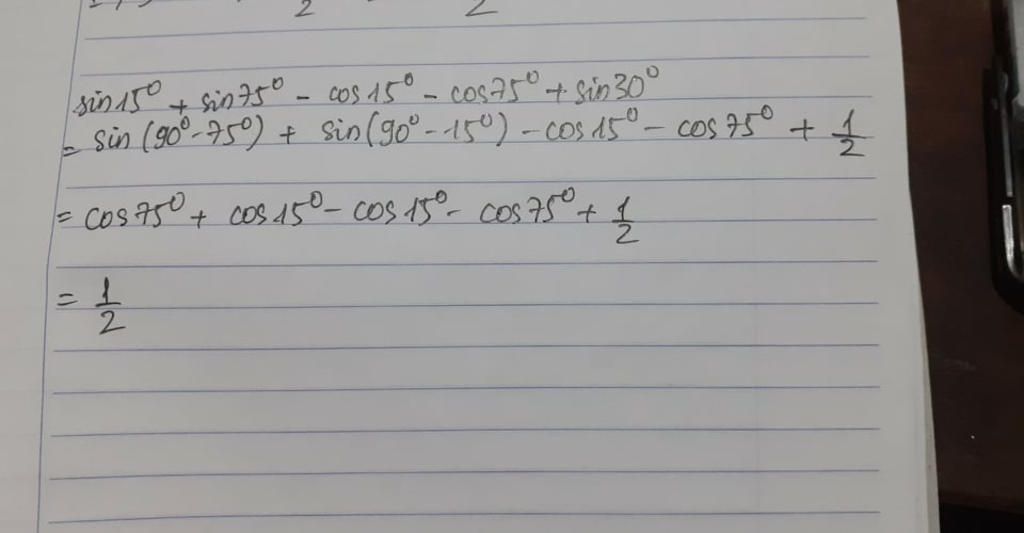 2 2
sin15⁰ + sin75⁰ - cos15⁰ - cos75⁰ + sin30⁰
= sin(90⁰-75⁰) + sin(90⁰-15⁰) - cos15⁰ - cos75⁰ + 1/2
= cos75⁰ + cos15⁰ - cos15⁰ - cos75⁰ + 1/2
= 1/2